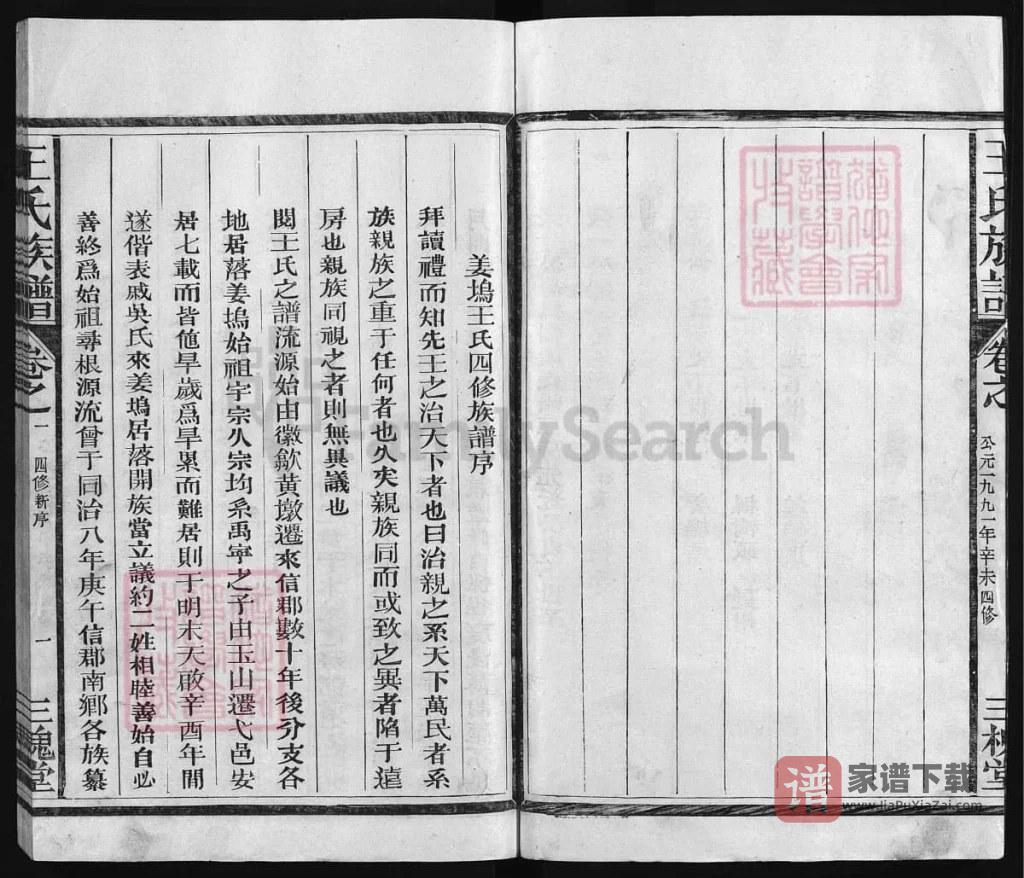 王氏族譜
卷之
公元一九九一年辛未四修
三槐堂
姜塢王氏四修族譜序
拜讀禮而知先王之治天下者也曰治親之系天下萬民者系
族親族之重于任何者也久矣親族同而或致之異者陷于遠
房也親族同視之者則無異議也
閱王氏之譜流源始由徽歙黃墩遷來信郡數十年後分支各
地居落姜塢始祖宇宗久宗均系禹寧之子由玉山遷弋邑安
居七載而皆値旱歲爲旱累而難居則于明末天啟辛酉年間
遂偕表戚吳氏來姜塢居落開族當立議約二姓相睦善始自必
善終爲始祖尋根源流曾于同治八年庚午信郡南鄉各族纂
王氏族譜
卷之一
四修新序
一
三槐堂
FamilySearch
譜
家谱下载
www.JiaPuXiaZai.com